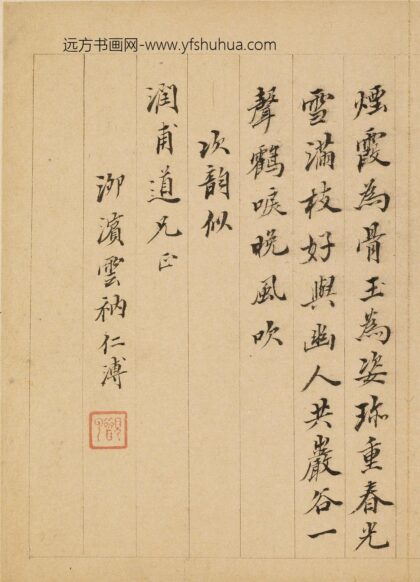 远方书画网-www.yfshuhua.com
煙霞為骨玉為姿珎重春光
雪滿枝好與幽人共巖谷一
聲鶴唳晚風吹
次韻似
潤甫道兄正
泖濱雲衲仁溥